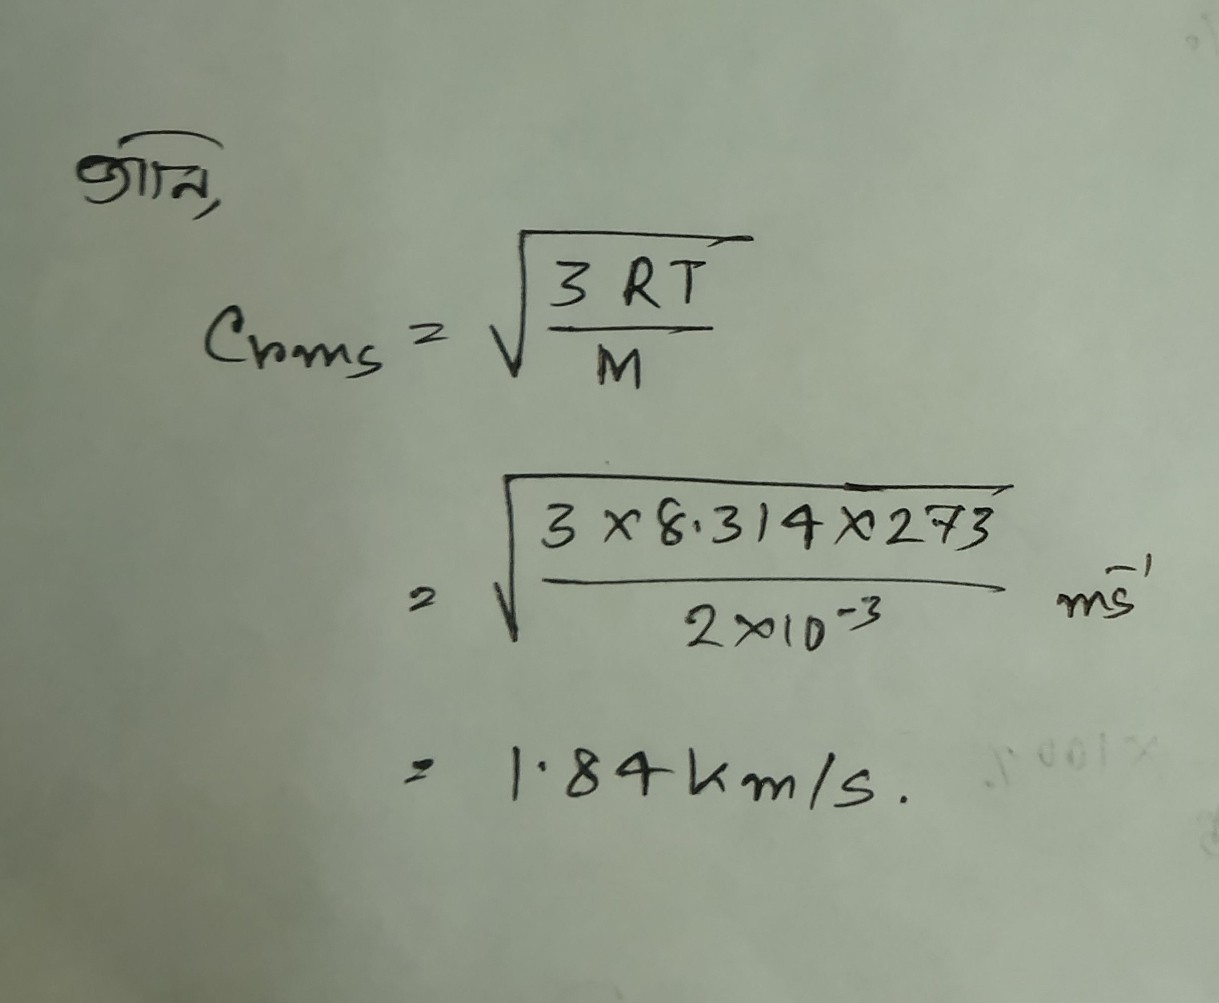 জানি,
Crms = √(3 RT / M)
= √(3 × 8.314 × 273 / 2×10⁻³) ms⁻¹
= 1.84 km/s.